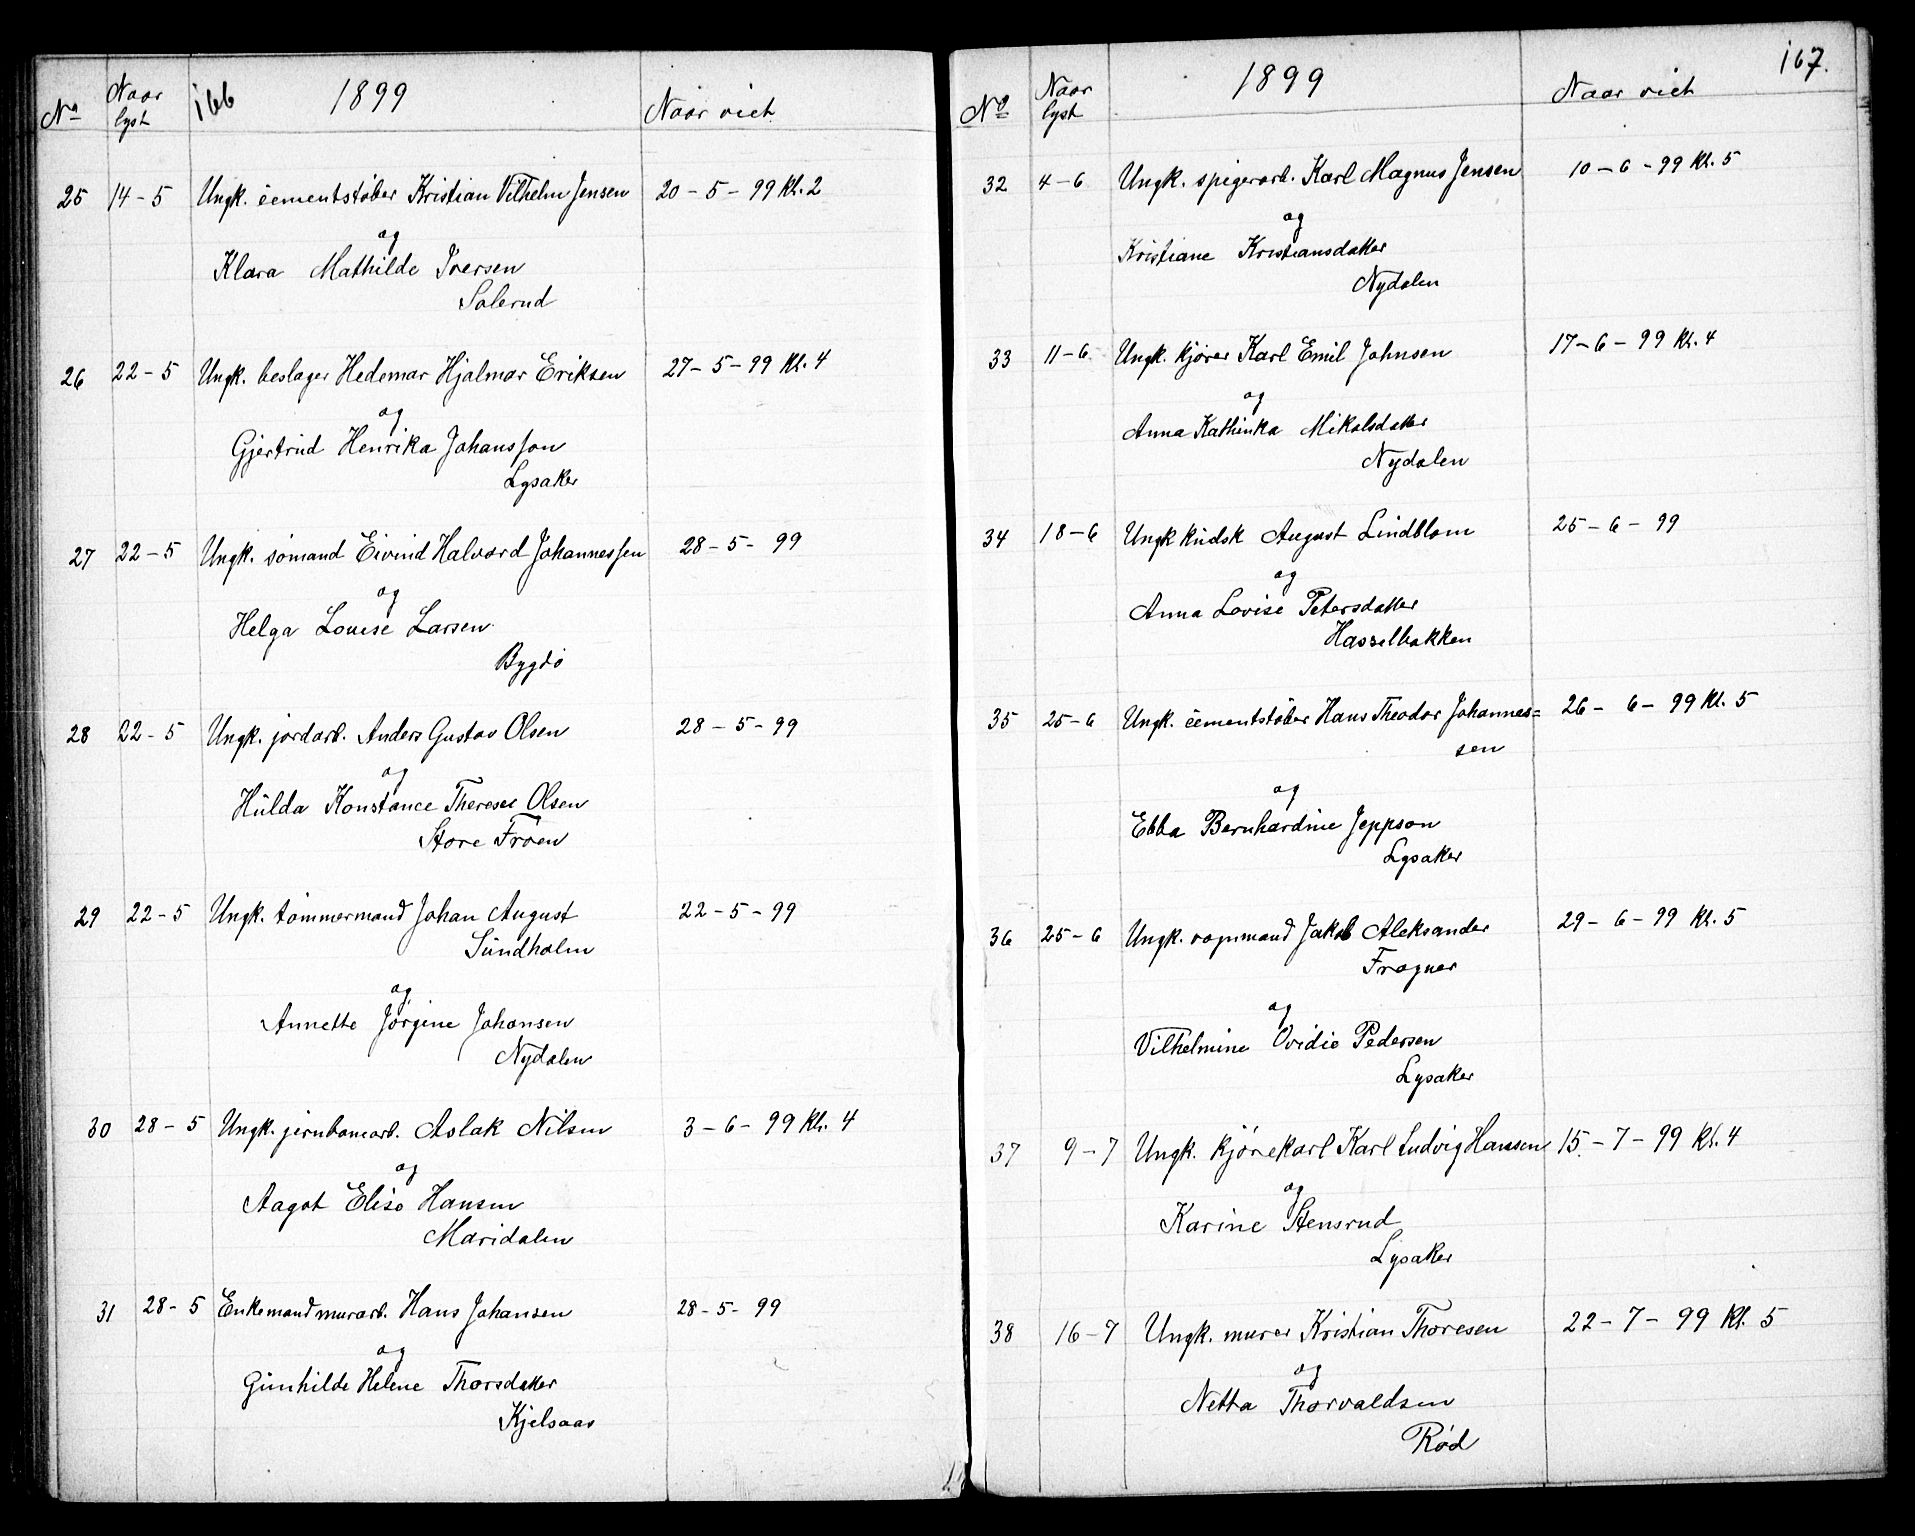 166 1899
No Naar lyst Naar viet
25 14-5 Ungk. cementstøber Kristian Vilhelm Jensen 20-5-99 Kl. 2
og
Klara Mathilde Iversen
Solerud
26 22-5 Ungk. beslager Hedemar Hjalmar Eriksen 27-5-99 Kl. 4
og
Gjertrud Henrika Johansson
Lysaker
27 22-5 Ungk. sømand Eivind Halvard Johannessen 28-5-99
og
Helga Louise Larsen
Bygdø
28 22-5 Ungk. jordarb. Anders Gustav Olsen 28-5-99
og
Hulda Konstance Therese Olsen
Store Frøen
29 22-5 Ungk. tømmermand Johan August 22-5-99
Sundholm
og
Annette Jørgine Johansen
Nydalen
30 28-5 Ungk. jernbanearb. Aslak Nilsen 3-6-99 Kl. 4
og
Aagot Elise Hansen
Maridalen
31 28-5 Enkemand murarb. Hans Johansen 28-5-99
og
Gunhilde Helene Thorsdatter
Kjelsaas
1899 167.
No Naar lyst Naar viet
32 4-6 Ungk. spigerarb. Karl Magnus Jensen 10-6-99 Kl. 5
og
Kristiane Kristiansdatter
Nydalen
33 11-6 Ungk. kjører Karl Emil Johnsen 17-6-99 Kl. 4
og
Anna Kathinka Mikalsdatter
Nydalen
34 18-6 Ungk kudsk August Lindblom 25-6-99
og
Anna Lovise Petersdatter
Hasselbakken
35 25-6 Ungk. cementstøber Hans Theodor Johannes= 26-6-99 Kl. 5
sen
og
Ebba Bernhardine Jeppson
Lysaker
36 25-6 Ungk. vognmand Jakob Aleksander 29-6-99 Kl. 5
Frogner
og
Vilhelmine Ovidie Pedersen
Lysaker
37 9-7 Ungk. kjørekarl Karl Ludvig Hanssen 15.-7-99 Kl. 4
og
Karine Stensrud
Lysaker
38 16-7 Ungk. murer Kristian Thoresen 22-7-99 Kl. 5
og
Netta Thorvaldsen
Rød